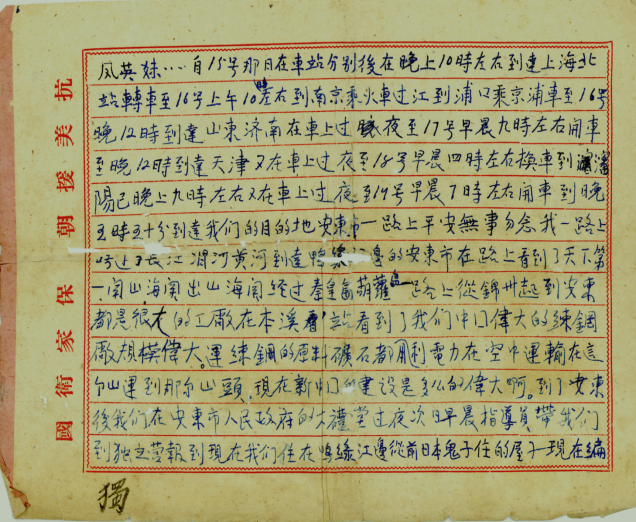 抗美援朝保家衛國
凤英妹……自15号那日在車站分别後在晚上10時左右到達上海北
站轉車至16号上午10時左右到南京乘火車过江到浦口乘京浦車至16号
晚12時到達山東济南在車上过夜至17号早晨九時左右開車
至晚12時到達天津又在車上过夜至18号早晨四時左右换車到瀋
陽已晚上九時左右又在車上过夜至19号早晨7時左右開車到晚
五時五十分到達我们的目的地安東市一路上平安無事勿念我一路上
过了長江渭河黄河到達鸭綠江邊的安東市在路上看到了天下第
一関山海関出山海関经过秦皇島葫蘆島一路上從錦州起到安東
都是很大的工廠在本溪站看到了我们中国偉大的練鋼
廠規模偉大。運練鋼的原料礦石都用利電力在空中運輸在這
尔山運到那尔山頭,現在新中国的建设是多么的偉大啊。到了安東
後我们在安東市人民政府的大禮堂过夜次日早晨指導員带我们
到独立营報到現在我们住在鸭綠江邊從前日本鬼子住的屋子一現在編
獨